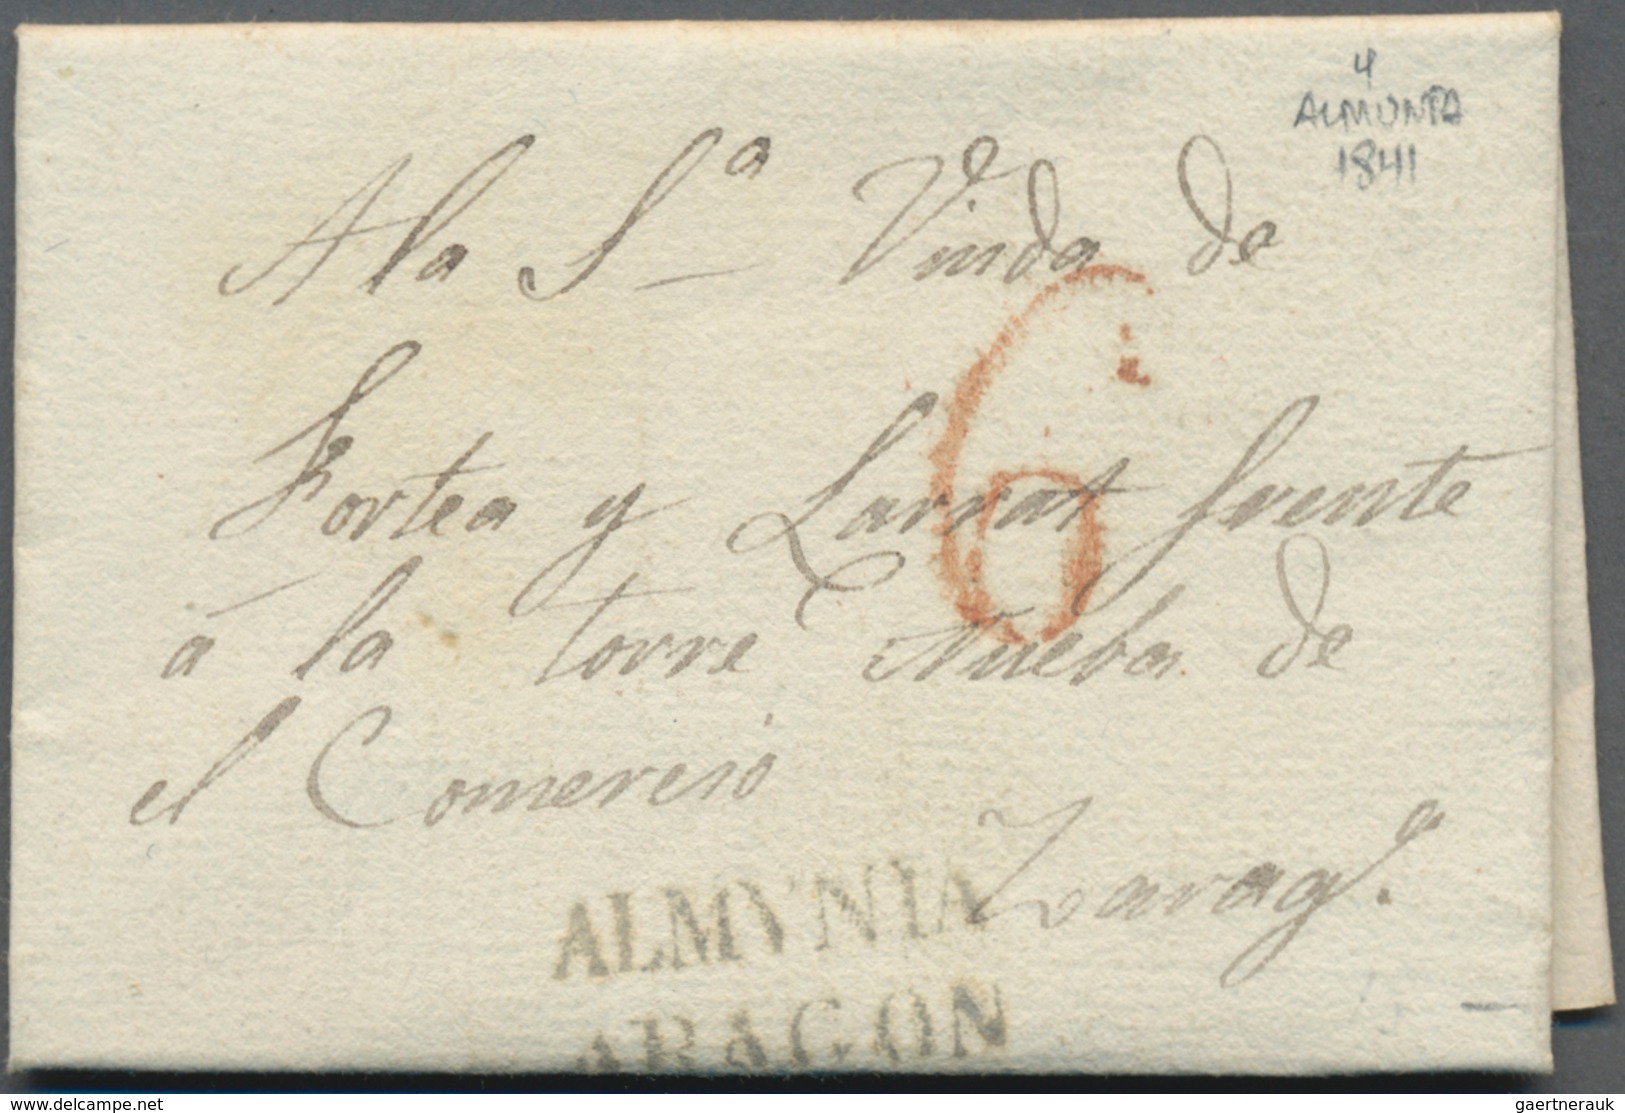 4
ALMUNIA
1841
A la S.ª Viuda de
6
Fortea y Larrat frente
á la torre Nueba de
el Comercio
Zarag.ª
ALMVNIA
ARAGON
delcampe.net
gaertnerauk